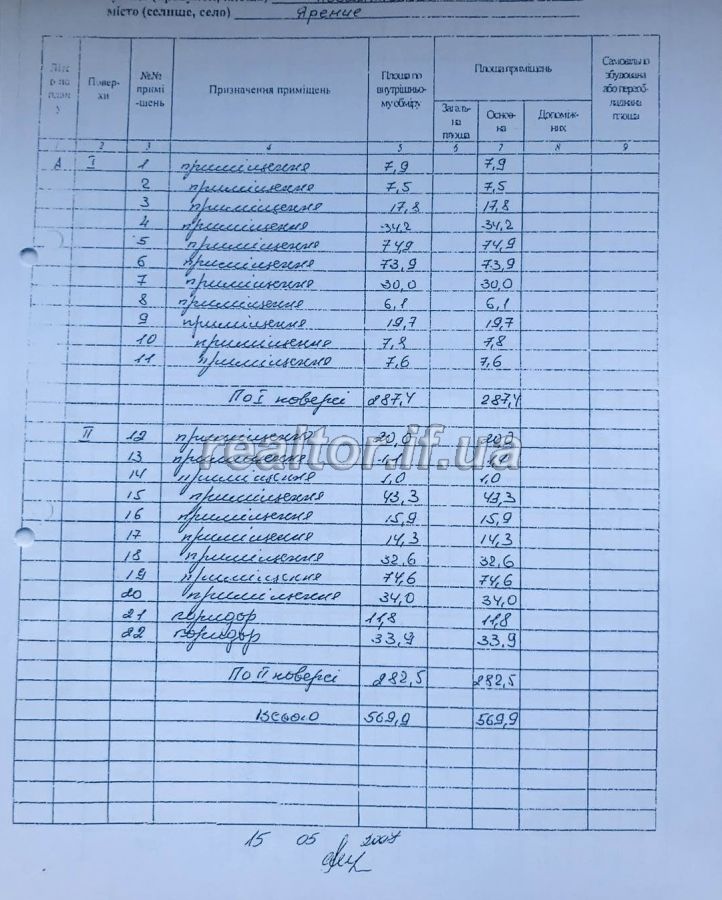 місто (селище, село) Яремче
Літера по плану
Поверхи
№№ примі-щень
Призначення приміщень
Площа по внутрішньому обміру
Площа приміщень
Загальна площа
Основна
Допоміжних
Самовільно збудована або переобладнана площа
1 2 3 4 5 6 7 8 9
А І 1 приміщення 7,9 7,9
2 приміщення 7,5 7,5
3 приміщення 17,8 17,8
4 приміщення 34,2 34,2
5 приміщення 74,9 74,9
6 приміщення 73,9 73,9
7 приміщення 30,0 30,0
8 приміщення 6,1 6,1
9 приміщення 19,7 19,7
10 приміщення 7,8 7,8
11 приміщення 7,6 7,6
По І поверсі 287,4 287,4
ІІ 12 приміщення 20,0 20,0
13 приміщення 1,1 1,1
14 приміщення 1,0 1,0
15 приміщення 43,3 43,3
16 приміщення 15,9 15,9
17 приміщення 14,3 14,3
18 приміщення 32,6 32,6
19 приміщення 74,6 74,6
20 приміщення 34,0 34,0
21 коридор 11,8 11,8
22 коридор 33,9 33,9
По ІІ поверсі 282,5 282,5
Всього 569,9 569,9
15 05
realtor.if.ua